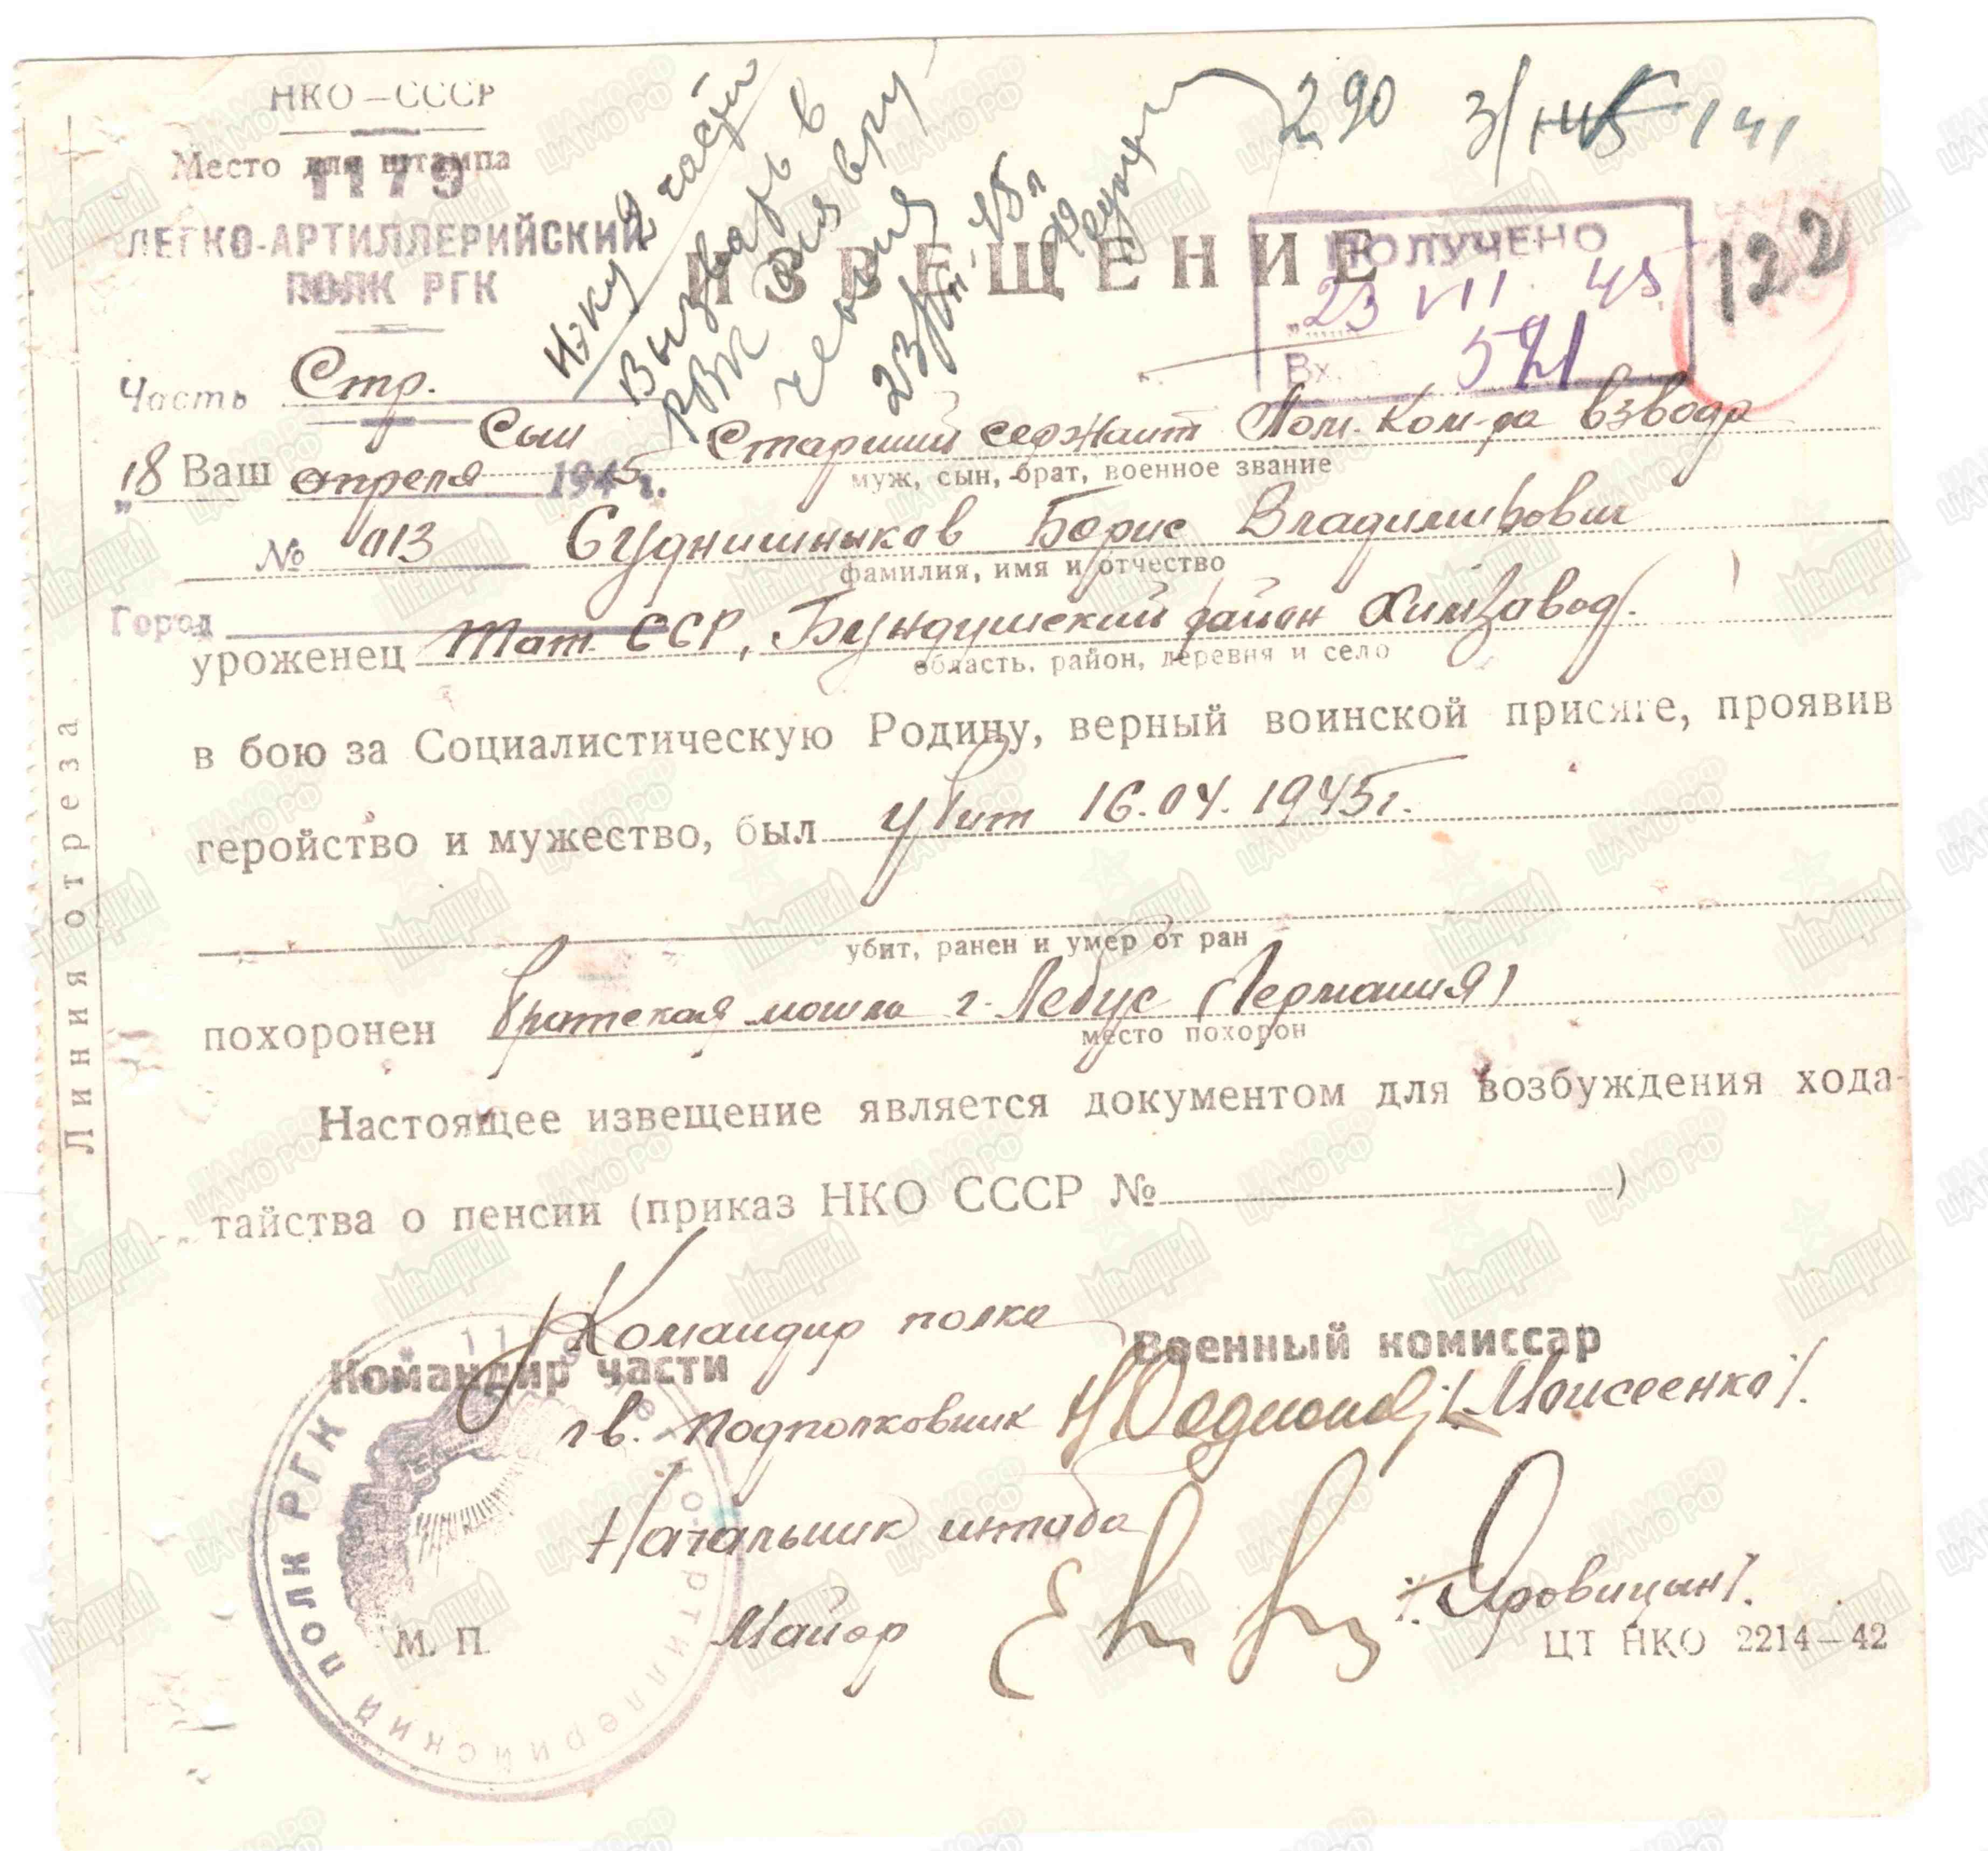 НКО — СССР
Место для штампа
1179
ЛЕГКО-АРТИЛЛЕРИЙСКИЙ
ПОЛК РГК
Н-ку 2 части
Вызвать в
РВК для вру
чения
23/VII-45г
290
122
ИЗВЕЩЕНИЕ
ПОЛУЧЕНО
„23 VII 45
Вх. 521
Часть Стр.
Ваш сын Старший сержант Пом. Ком-ра взвода
муж, сын, брат, военное звание
„18 апреля 1945 г.
№ 013 Суднишников Борис Владимирович
фамилия, имя и отчество
Город
уроженец Тат. ССР, Бундушский район Химзавод.
область, район, деревня и село
в бою за Социалистическую Родину, верный воинской присяге, проявив
геройство и мужество, был убит 16.04.1945г.
убит, ранен и умер от ран
похоронен братская могила г. Лебус (Германия)
место похорон
Настоящее извещение является документом для возбуждения хода-
тайства о пенсии (приказ НКО СССР № )
Командир полка
Командир части Военный комиссар
гв. подполковник /Моисеенко/.
Начальник штаба
Майор /Яровицын/.
М. П.
ЦТ НКО 2214—42
1179 легко-артиллерийский полк РГК
Линия отреза